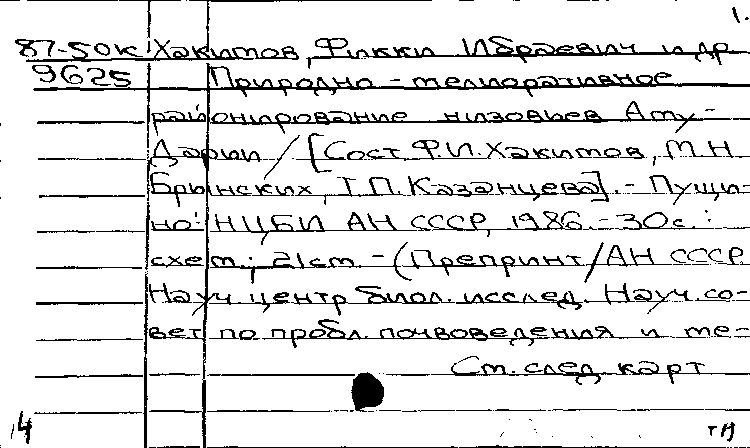 1.
87-50к Хакитов, Фикки Ибраевич и др
9625 Природно-мелиоративное
районирование низовьев Аму-
Дарьи / [Сост. Ф.И. Хакитов, М.Н.
Брынских, Т.П. Казанцева]. - Пущи-
но: НЦБИ АН СССР, 1986. - 30с.:
схем.; 21см. - (Препринт / АН СССР
Науч. центр биол. исслед. Науч. со-
вет по пробл. почвоведения и ме-
См. след. карт
14